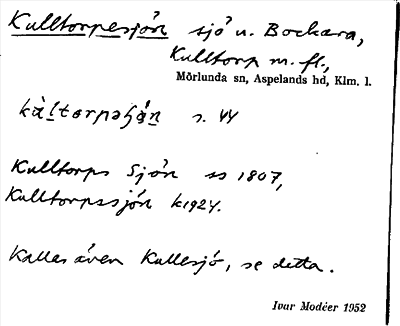 Kulltorpesjön sjö u. Bockara,
Kulltorp m. fl.,
Mörlunda sn, Aspelands hd, Klm. l.
s. 44
Kulltorps Sjön ss 1807,
Kulltorpssjön k1924.
Kallas även Kullesjö, se detta.
Ivar Modéer 1952